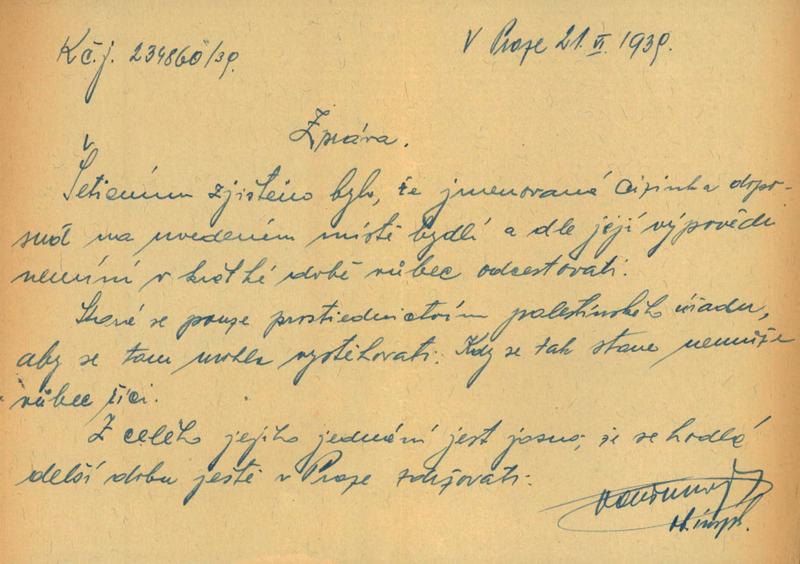 K č.j. 234860/39.
V Praze 21. VI. 1939.
Zpráva.
Šetřením zjištěno bylo, že jmenovaná cizinka dopo-
sud na uvedeném místě bydlí a dle její výpovědi
nemíní v krátké době vůbec odcestovati.
Stará se pouze prostřednictvím palestinského úřadu,
aby se tam mohla vystěhovati. Kdy se tak stane nemůže
vůbec říci.
Z celého jejího jednání jest jasno, že se hodlá
delší dobu ještě v Praze zdržovati.